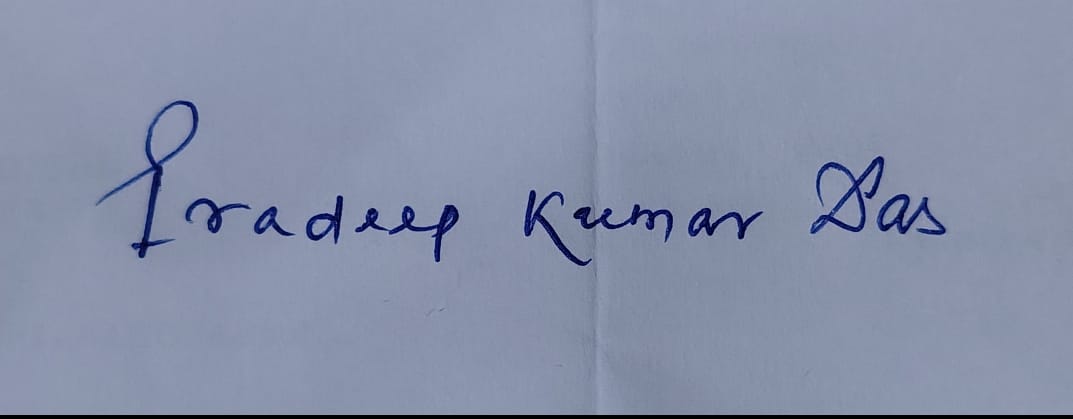 Pradeep Kumar Das